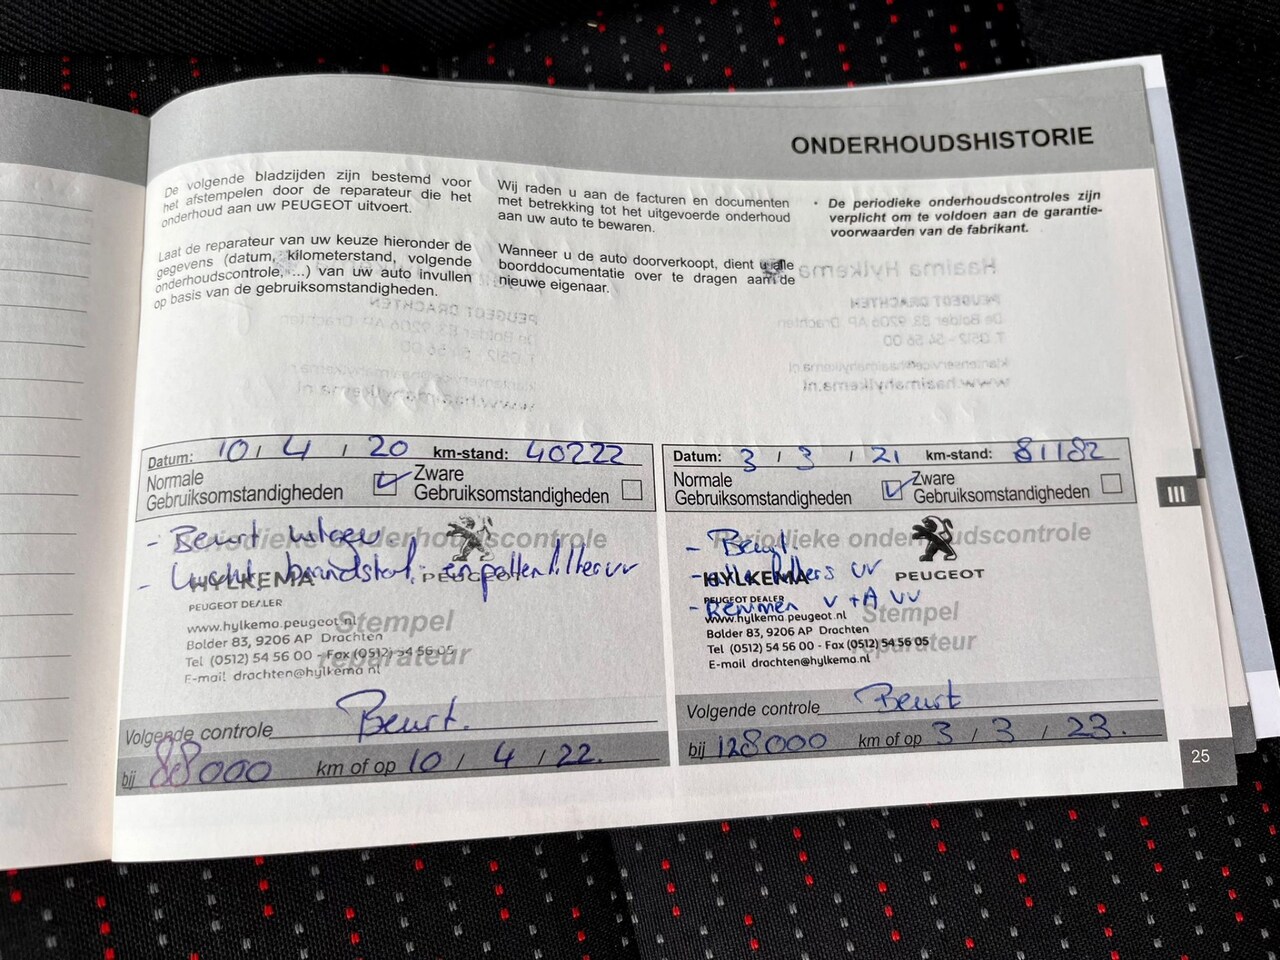 ONDERHOUDSHISTORIE
De volgende bladzijden zijn bestemd voor
het afstempelen door de reparateur die het
onderhoud aan uw PEUGEOT uitvoert.
Laat de reparateur van uw keuze hieronder de
gegevens (datum, kilometerstand, volgende
onderhoudscontrole, ...) van uw auto invullen
op basis van de gebruiksomstandigheden.
Wij raden u aan de facturen en documenten
met betrekking tot het uitgevoerde onderhoud
aan uw auto te bewaren.
Wanneer u de auto doorverkoopt, dient u alle
boorddocumentatie over te dragen aan de
nieuwe eigenaar.
• De periodieke onderhoudscontroles zijn
verplicht om te voldoen aan de garantie-
voorwaarden van de fabrikant.
Datum: 10 / 4 / 20 km-stand: 40222
Normale
Gebruiksomstandigheden
Zware
Gebruiksomstandigheden
Periodieke onderhoudscontrole
- Beurt
- Lucht, brandstof, en pollenfilter vv
HYLKEMA PEUGEOT
PEUGEOT DEALER
Stempel
reparateur
www.hylkema.peugeot.nl
Bolder 83, 9206 AP Drachten
Tel (0512) 54 56 00 - Fax (0512) 54 56 05
E-mail drachten@hylkema.nl
Volgende controle Beurt.
bij 88000 km of op 10 / 4 / 22.
Datum: 3 / 3 / 21 km-stand: 81182
Normale
Gebruiksomstandigheden
Zware
Gebruiksomstandigheden
Periodieke onderhoudscontrole
- Beurt
- alle filters vv
- Remmen v + A vv
HYLKEMA PEUGEOT
PEUGEOT DEALER
Stempel
reparateur
www.hylkema.peugeot.nl
Bolder 83, 9206 AP Drachten
Tel (0512) 54 56 00 - Fax (0512) 54 56 05
E-mail drachten@hylkema.nl
Volgende controle Beurt
bij 128000 km of op 3 / 3 / 23.
III
25